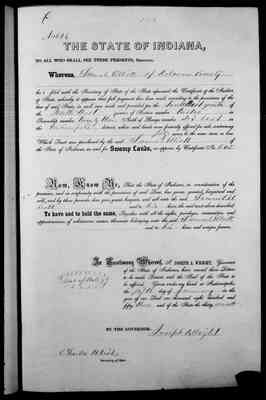 THE STATE OF INDIANA,
TO ALL WHO SHALL SEE THESE PRESENTS, Greeting:
Whereas, Samuel Elliott of Delaware County
has filed with the Secretary of State of the State aforesaid the Certificate of the Auditor
of State, whereby it appears that full payment has been made according to the provisions of the
laws of said State, in such case made and provided for the South East quarter of
the North East quarter of Section number
Township number Twenty three North of Range number East in
the district, where said lands were formerly offered for sale, containing
acres to the same more or less,
Which Tract was purchased by the said Samuel Elliott of
the State of Indiana, as and for Swamp Lands, as appears by Certificate No.
Now, Know Ye, That the State of Indiana, in consideration of the
premises, and in conformity with the provisions of said Laws, has given, granted, bargained and
sold, and by these presents does give, grant, bargain, and sell unto the said Samuel El
liott and to his heirs, the said tract above described.
To have and to hold the same, Together with all the rights, privileges, immunities and
appurtenances of whatsoever nature thereunto belonging unto the said Samuel Elliott
and to his heirs and assigns forever.
In Testimony Whereof, I, JOSEPH A. WRIGHT, Governor
of the State of Indiana, have caused these Letters
to be made Patent and the Seal of the State to
be affixed. Given under my hand, at Indianapolis,
the day of January in the
year of our Lord one thousand eight hundred and
fifty three and of the State the thirty seventh
BY THE GOVERNOR,
Joseph A. Wright
Secretary of State